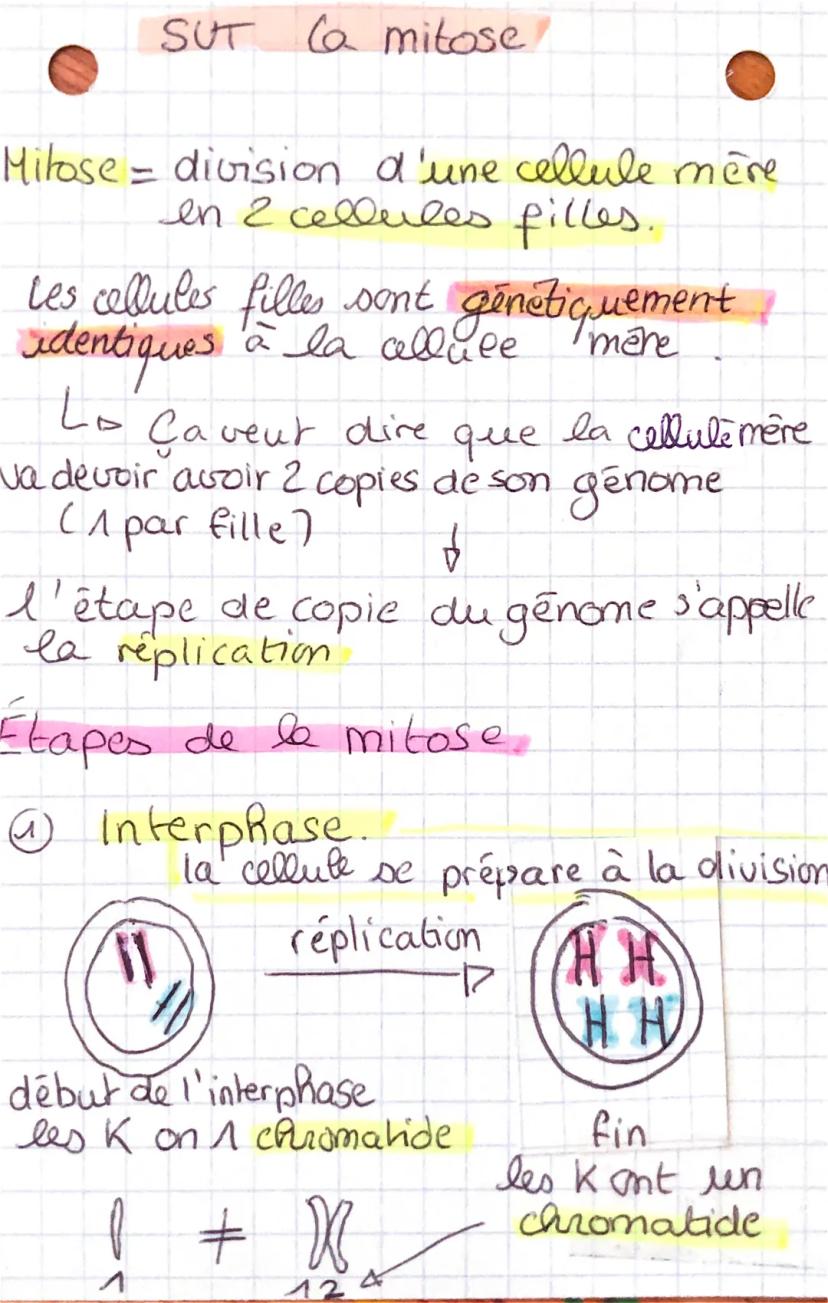 SVT la mitose
Mitose = division d'une cellule mère
en 2 cellules filles.
Les cellules filles sont génétiquement
identiques à la cellule mère.
↳ Ça veut dire que la cellule mère
va devoir avoir 2 copies de son génome
(1 par fille)
↓
l'étape de copie du génome s'appelle
la réplication
Étapes de la mitose.
① Interphase.
la cellule se prépare à la division
réplication
début de l'interphase
les K on 1 chromatide
fin
les K ont un
chromatide
≠
1 12